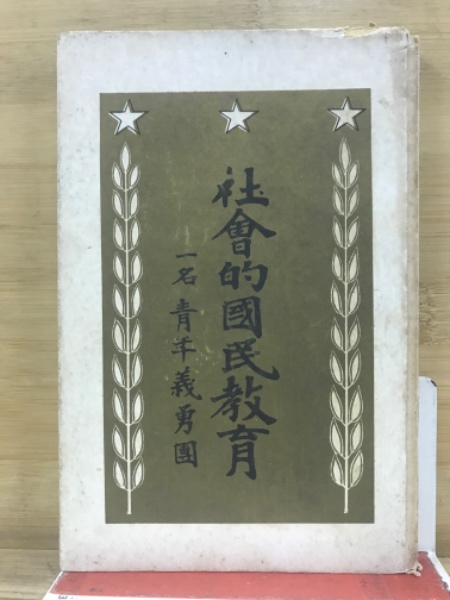 社會的國民教育
一名 青年義勇團